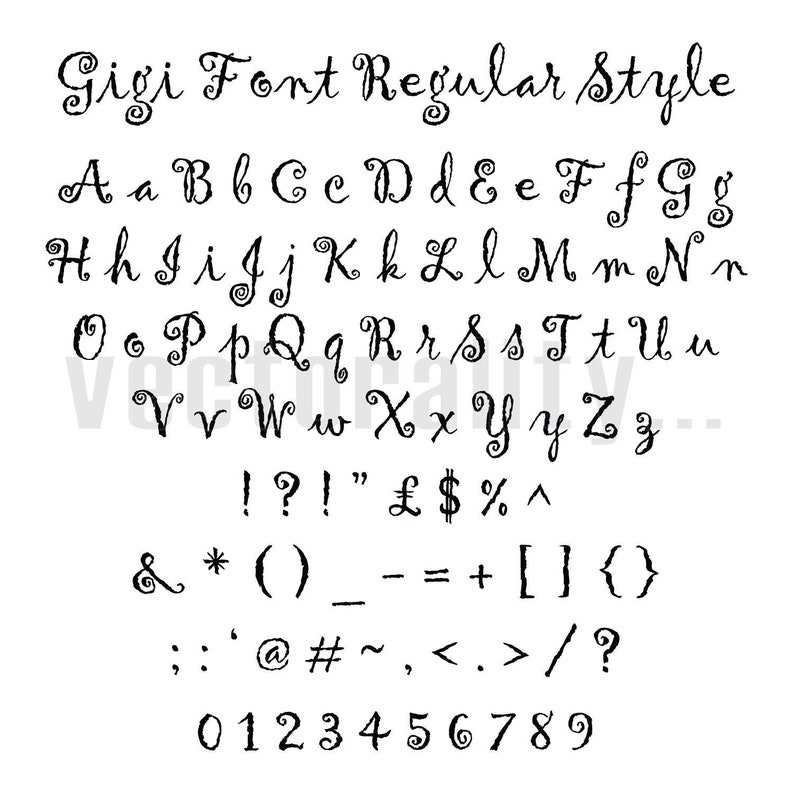 Gigi Font Regular Style
A a B b C c D d E e F f G g
H h I i J j K k L l M m N n
O o P p Q q R r S s T t U u
vectorality...
V v W w X x Y y Z z
! ? ! " £ $ % ^
& * ( ) _ - = + [ ] { }
; : ‘ @ # ~ , < . > / ?
0 1 2 3 4 5 6 7 8 9